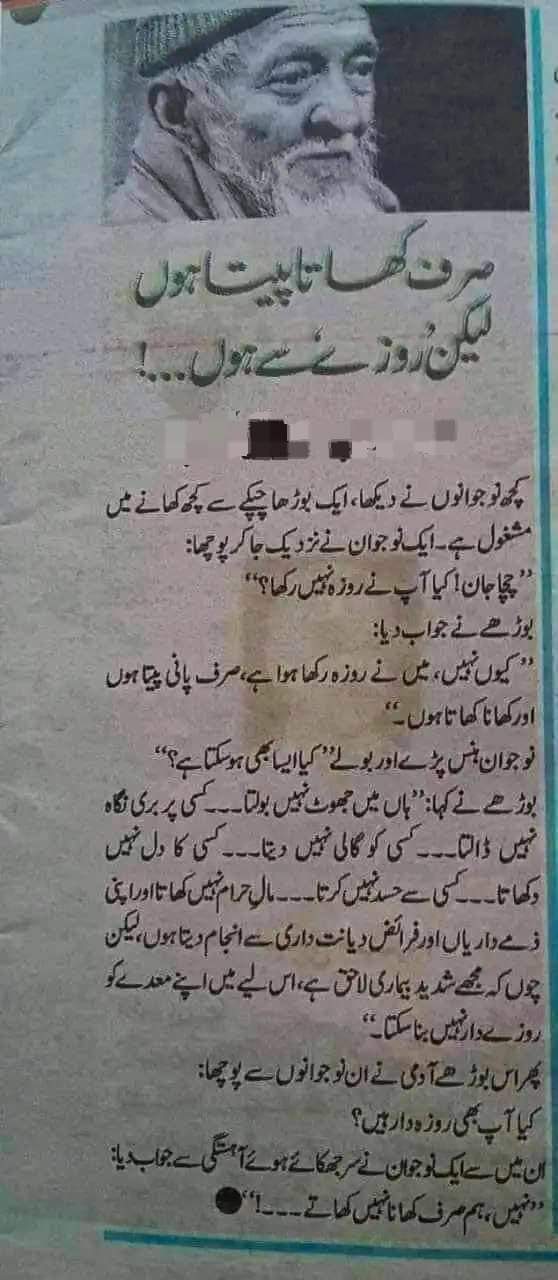 صرف کھاتا پیتا ہوں
لیکن ’روزے‘ سے ہوں...!
کچھ نوجوانوں نے دیکھا، ایک بوڑھا چپکے سے کچھ کھانے میں
مشغول ہے۔ ایک نوجوان نے نزدیک جا کر پوچھا:
’’چچا جان! کیا آپ نے روزہ نہیں رکھا؟‘‘
بوڑھے نے جواب دیا:
’’کیوں نہیں، میں نے روزہ رکھا ہوا ہے، صرف پانی پیتا ہوں
اور کھانا کھاتا ہوں۔‘‘
نوجوان ہنس پڑے اور بولے ’’کیا ایسا بھی ہوسکتا ہے؟‘‘
بوڑھے نے کہا: ’’ہاں میں جھوٹ نہیں بولتا۔۔۔ کسی پر بری نگاہ
نہیں ڈالتا۔۔۔ کسی کو گالی نہیں دیتا۔۔۔ کسی کا دل نہیں
دکھاتا۔۔۔ کسی سے حسد نہیں کرتا۔۔۔ مالِ حرام نہیں کھاتا اور اپنی
ذمے داریاں اور فرائض دیانت داری سے انجام دیتا ہوں، لیکن
چوں کہ مجھے شدید بیماری لاحق ہے، اس لیے میں اپنے معدے کو
روزے دار نہیں بنا سکتا۔‘‘
پھر اس بوڑھے آدمی نے ان نوجوانوں سے پوچھا:
کیا آپ بھی روزہ دار ہیں؟
ان میں سے ایک نوجوان نے سر جھکائے ہوئے آہستگی سے جواب دیا:
’’نہیں، ہم صرف کھانا نہیں کھاتے۔۔۔!‘‘●